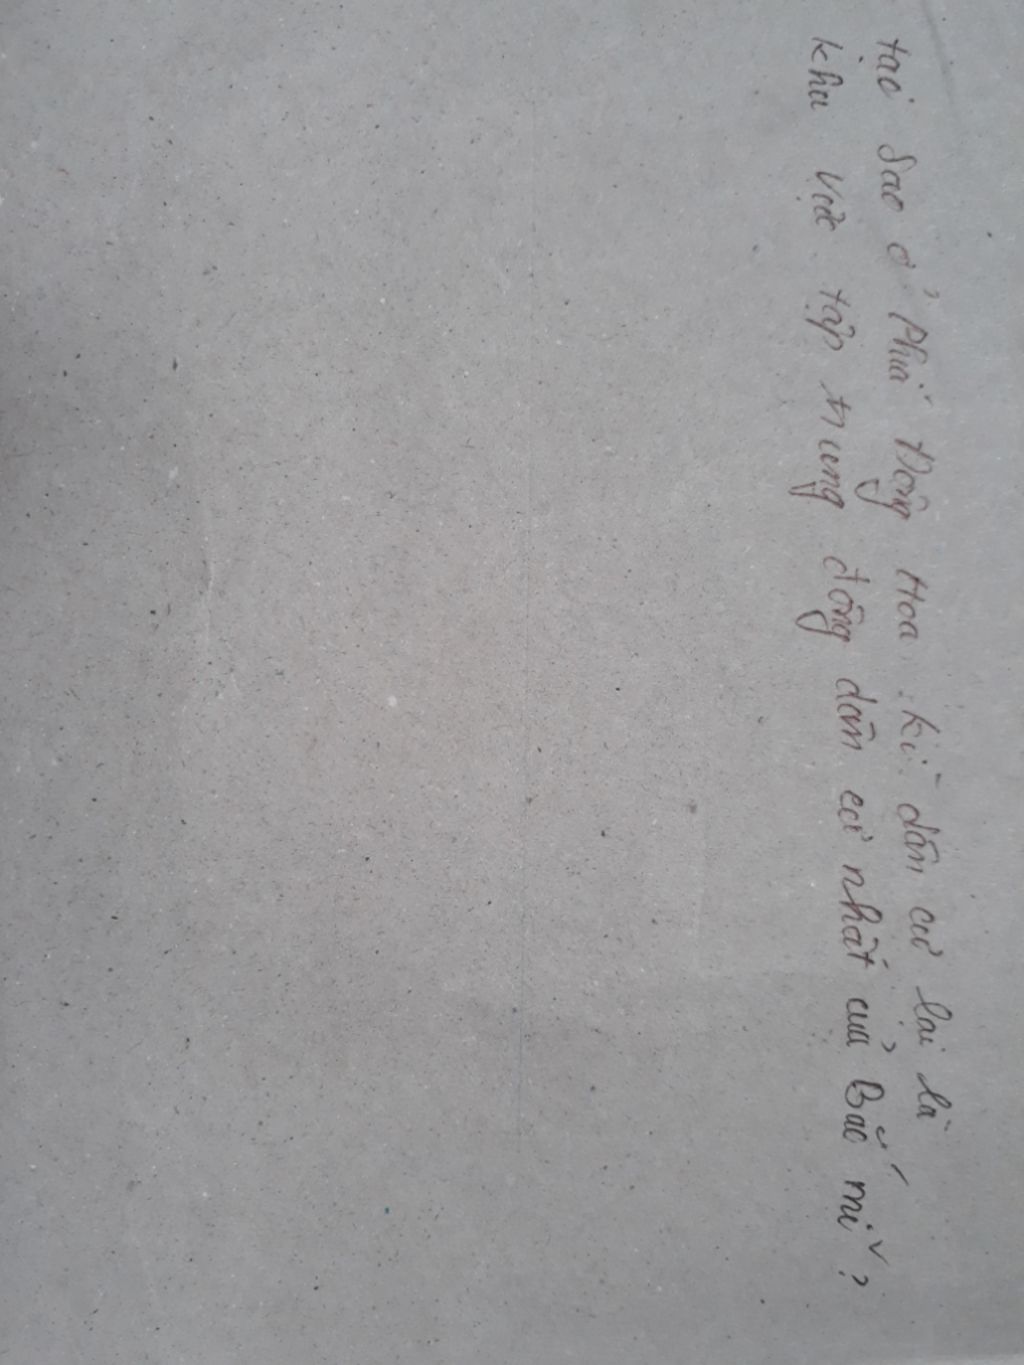 tại sao ở Phía Đông Hoa kì dân cư lại là
khu vực tập trung đông dân cư nhất của Bắc mĩ ?